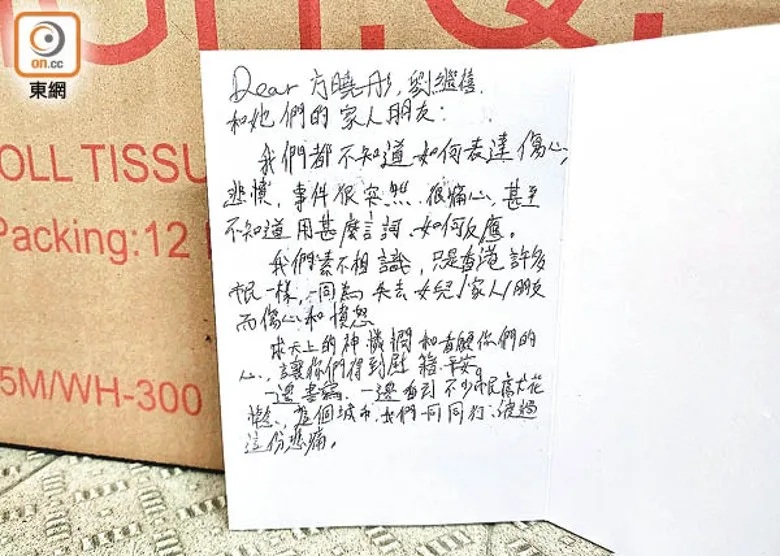 on.cc
東網
ROLL TISSU
Packing:12
5M/WH-300
Dear 方曉彤, 劉繼禧
和她們的家人朋友:
我們都不知道如何表達傷心,
悲憤, 事件很突然. 很痛心, 甚至
不知道用甚麼言詞、如何反應。
我們素不相識, 只是香港許多
市民一樣, 一同為失去女兒/家人/朋友
而傷心和憤怒
求天上的神憐憫和看顧你們的
心、讓你們得到慰籍. 平安。
一邊書寫. 一邊看到不少市民
這個城市. 我們一同同行、渡過
這份悲痛。